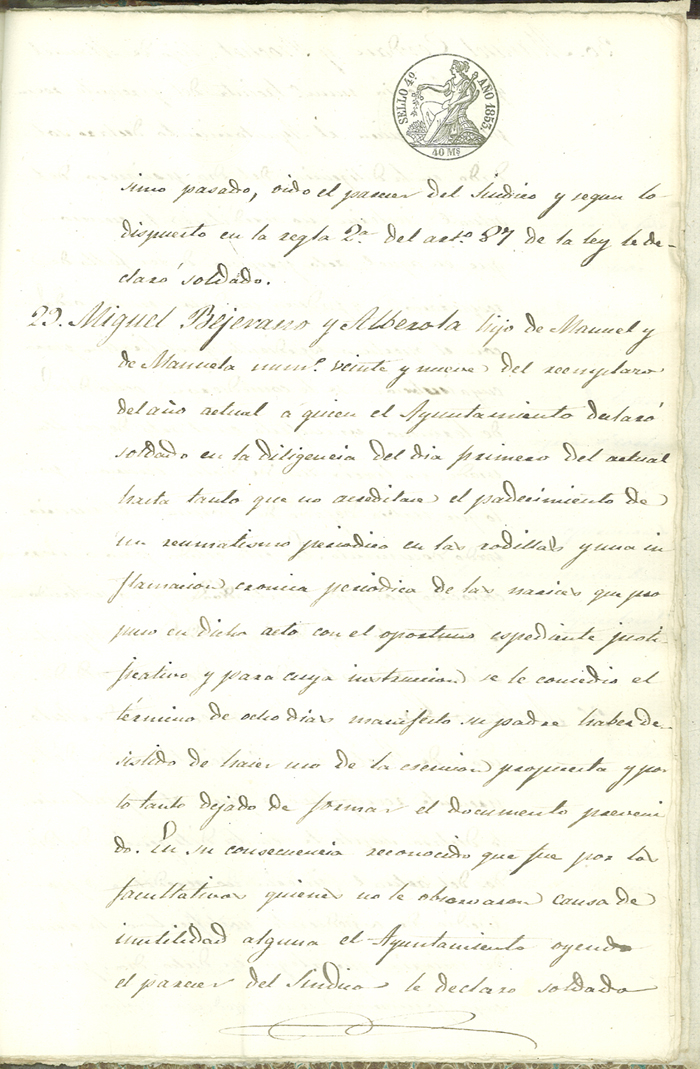 SELLO 4º AÑO 1853.
40 Ms
simo pasado, oido el parecer del Sindico y segun lo
dispuesto en la regla 2ª del arto 87 de la ley le de-
claró soldado.
29. Miguel Bejerano y Alberola hijo de Manuel y
de Manuela numo veinte y nueve del reemplazo
del año actual a quien el Ayuntamiento declaró
soldado en la diligencia del dia primero del actual
hasta tanto que no acreditare el padecimiento de
un reumatismo periodico en las rodillas y una in
flamacion cronica periodica de las narices que pro
puso en dicho acto con el oportuno espediente justi-
ficativo y para cuya instruccion se le concedio el
término de ocho dias manifesto su padre haber de-
sistido de hacer uso de la esencion propuesta y por
lo tanto dejado de formar el documento preveni
do. En su consecuencia reconocido que fue por los
facultativos quienes no le observaron causa de
inutilidad alguna el Ayuntamiento oyendo
el parecer del Sindico le declaro soldado